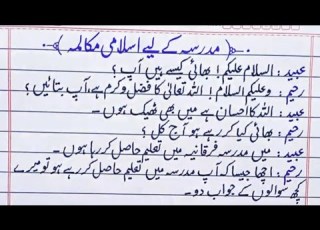 ﴿ مدرسہ کے لیے اسلامی مکالمہ ﴾
عبید: السلام علیکم! بھائی کیسے ہیں آپ؟
رحیم: وعلیکم السلام! اللہ تعالیٰ کا فضل و کرم ہے، آپ بتائیں؟
عبید: اللہ کا احسان ہے میں بھی ٹھیک ہوں۔
رحیم: بھائی کیا کر رہے ہو آج کل؟
عبید: میں مدرسہ فرقانیہ میں تعلیم حاصل کر رہا ہوں۔
رحیم: اچھا جیسا کہ آپ مدرسہ میں تعلیم حاصل کر رہے ہو تو میرے
کچھ سوالوں کے جواب دو۔